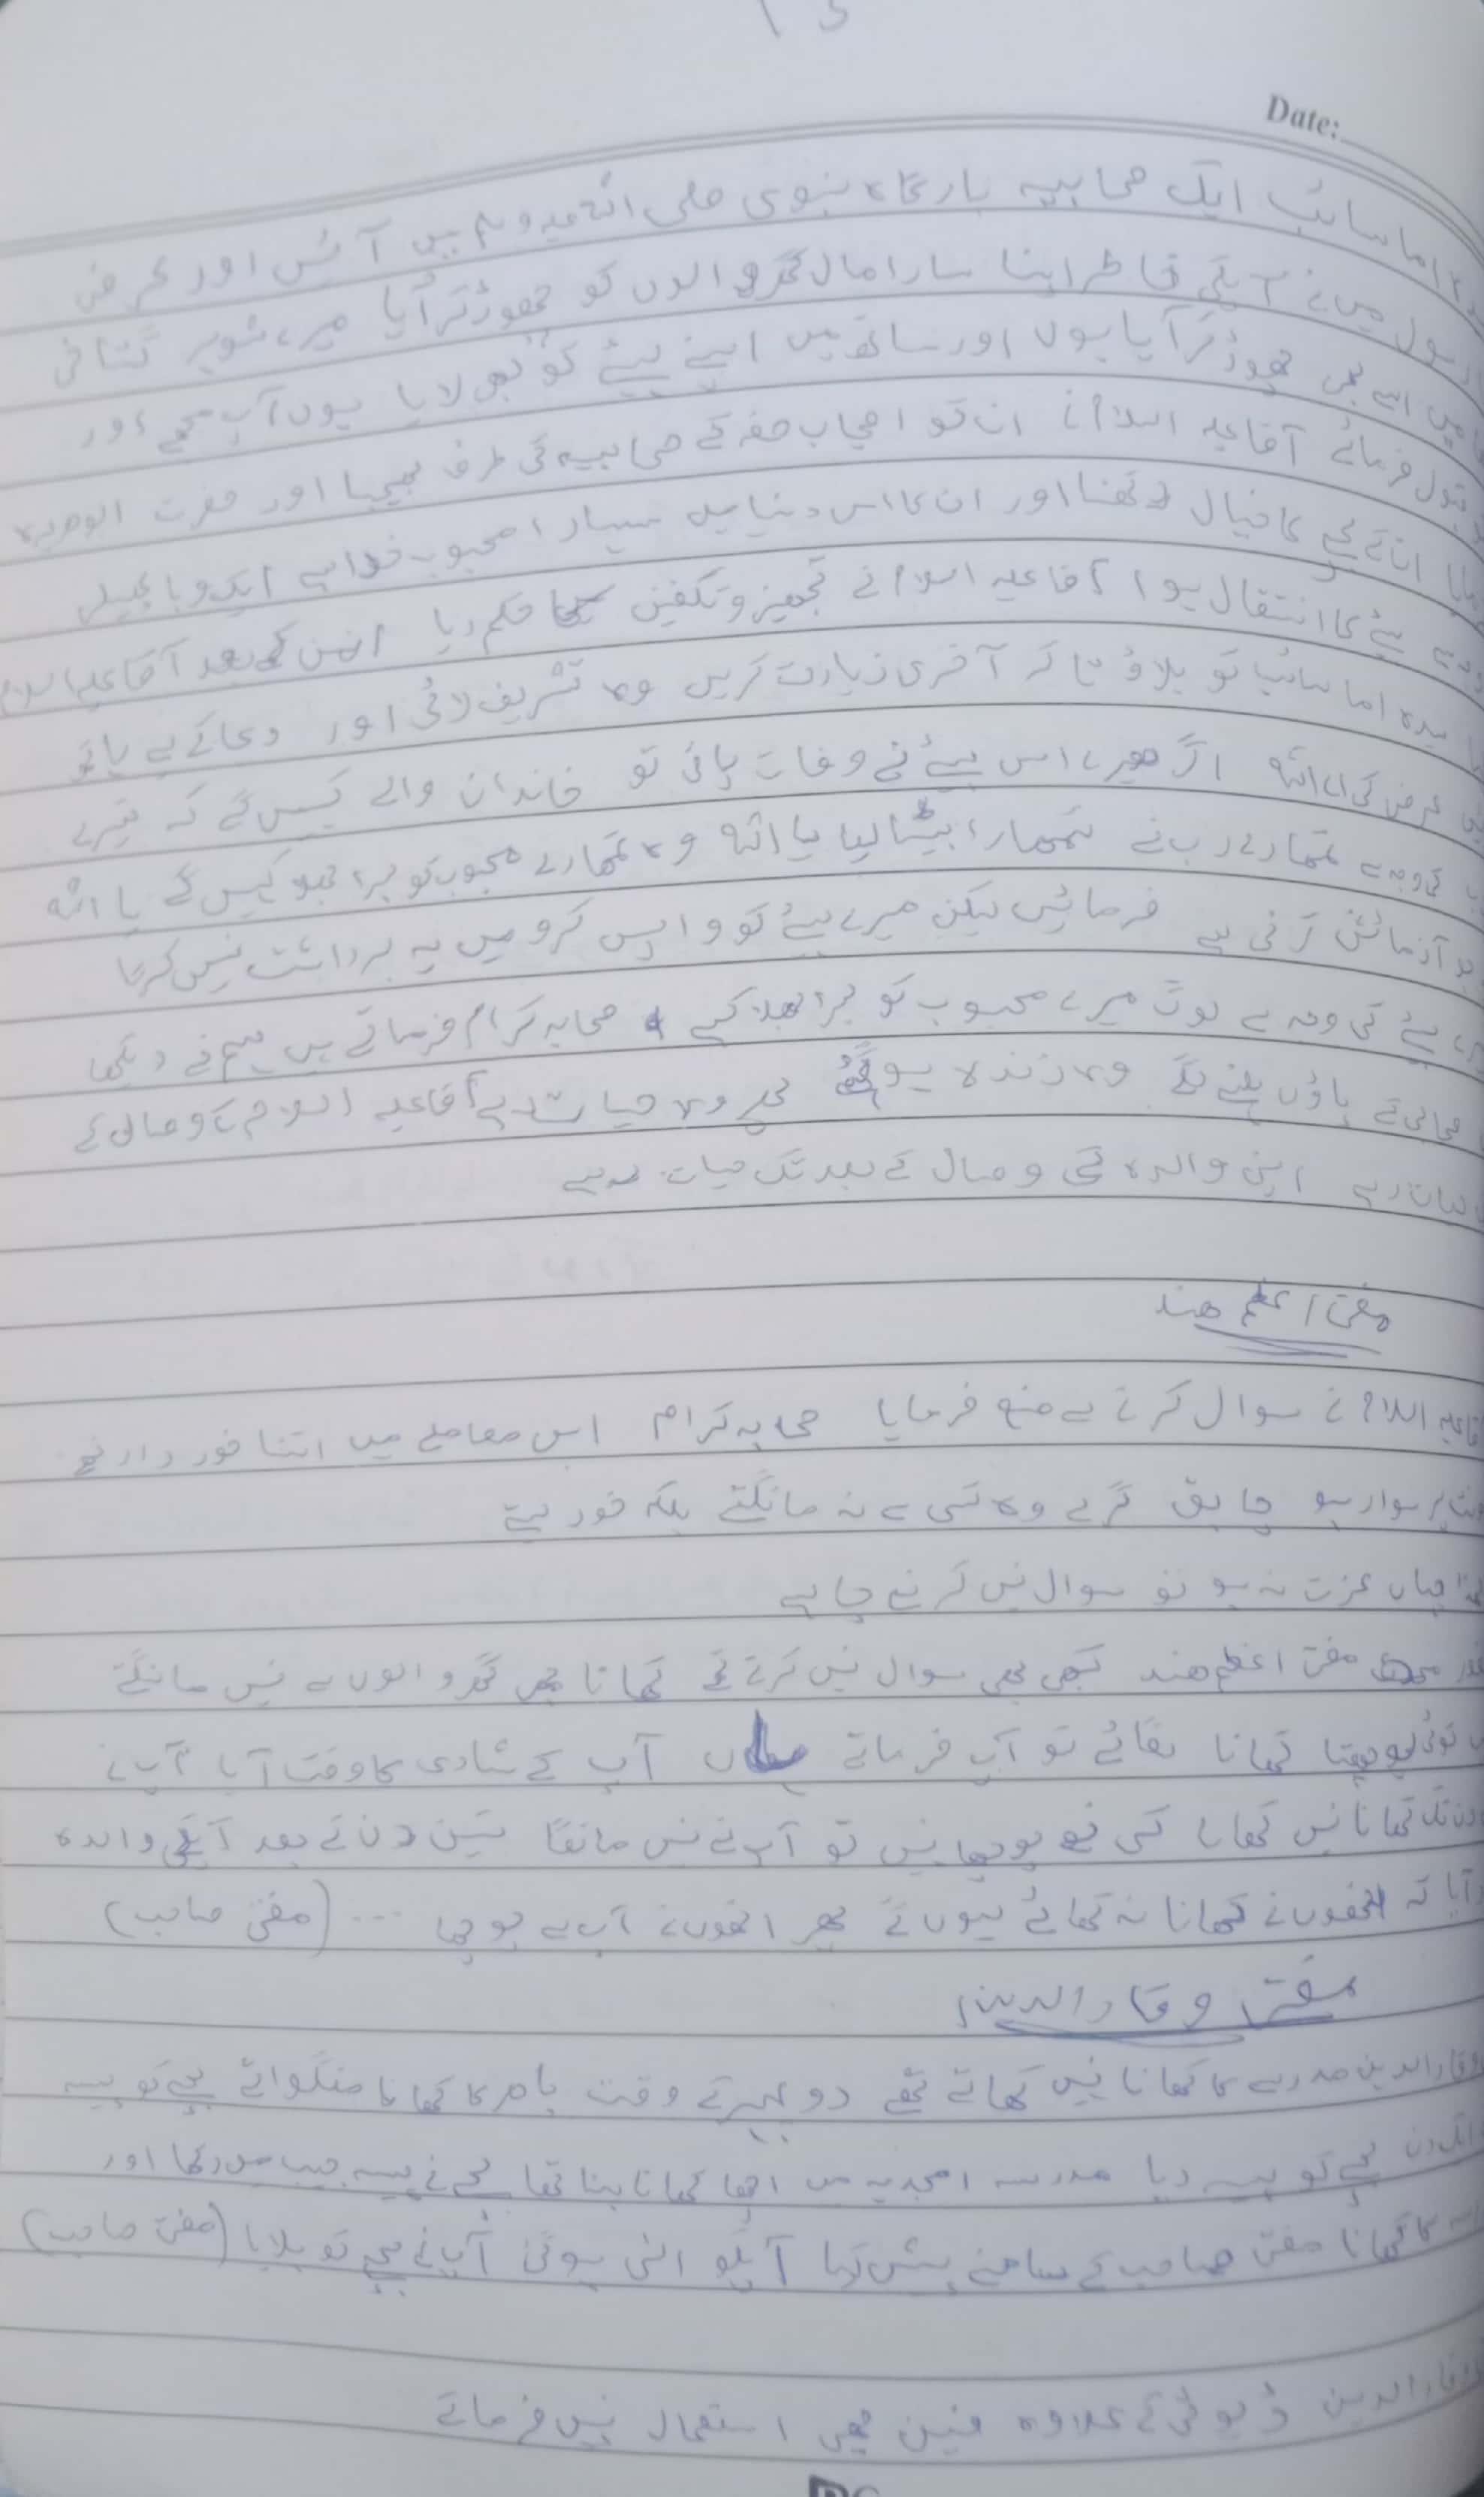 Date:
اما سائب ایک صحابیہ بارگاہ نبوی صلی اللہ علیہ وسلم میں آئیں اور عرض
میں نے آپکی خاطر اپنا سارا مال گھر والوں کو چھوڑ کر آیا میرے شوہر گستاخی
اسے بھی چھوڑ کر آیا ہوں اور ساتھ میں اپنے بیٹے کو بھی لایا ہوں آپ مجھے اور
قبول فرمائے آقا علیہ السلام نے ان کو اصحاب صفہ کے صحابیہ کی طرف بھیجا اور حضرت ابوھریرہ
ان کے بچے کا خیال رکھنا اور ان کا اس دنیا میں سہارا محبوب خدا ہے ایک وبا پھیلی
بیٹے کا انتقال ہوا آقا علیہ السلام نے تجھیز و تکفین کا حکم دیا اس کے بعد آقا علیہ السلام
اما سائب کو بلاؤ تا کہ آخری زیارت کریں وہ تشریف لائی اور دعا کے لیے ہاتھ
عرض کی اے اللہ اگر میرے اس بیٹے نے وفات پائی تو خاندان والے کہیں گے کہ تیرے
کی وجہ سے تمھارے رب نے تمھارا بیٹا لیا یا اللہ وہ تمھارے محبوب کو برا بھلا کہیں گے یا اللہ
آزمائش کرنی ہے فرمائیں لیکن میرے بیٹے کو واپس کرو میں یہ برداشت نہیں کرتا
بیٹے کی وجہ سے لوگ میرے محبوب کو برا بھلا کہے صحابہ کرام فرماتے ہیں ہم نے دیکھا
صحابی کے پاؤں ہلنے لگے وہ زندہ ہو گئے پھر وہ حیات رہے آقا علیہ السلام کے وصال کے
حیات رہے اپنی والدہ کی وصال کے بعد تک حیات رہے
مفتی اعظم ھند
علیہ السلام نے سوال کرنے سے منع فرمایا صحابہ کرام اس معاملے میں اتنا خود دار تھے
پر سوار ہو چابق گرے وہ کسی سے نہ مانگتے بلکہ خود لیتے
جہاں عزت نہ ہو تو سوال نہیں کرنے چاہیے
مفتی اعظم ھند کبھی بھی سوال نہیں کرتے تھے کھانا بھی گھر والوں سے نہیں مانگتے
کوئی پوچھتا کھانا کھائے تو آپ فرماتے ہاں آپ کے شادی کا وقت آیا آپ نے
دن تک کھانا نہیں کھایا کسی نے پوچھا نہیں تو آپ نے نہیں مانگا تین دن کے بعد آپکی والدہ
آیا کہ انھوں نے کھانا نہ کھائے ہوں گے پھر انھوں نے آپ سے پوچھا ... (مفتی صاحب)
مفتی وقار الدین
وقار الدین مدرسے کا کھانا نہیں کھاتے تھے دوپہر کے وقت باھر کا کھانا منگواتے بچے کو پیسے
ایک دن بچے کو پیسے دیا مدرسہ امجدیہ میں اچھا کھانا بنا تھا بچے نے پیسے جیب میں رکھا اور
کا کھانا مفتی صاحب کے سامنے پیش کیا آپکو الٹی ہوگئی آپ نے بچے کو بلایا (مفتی صاحب)
وقار الدین ڈیوٹی کے علاوہ فین بھی استعمال نہیں فرماتے